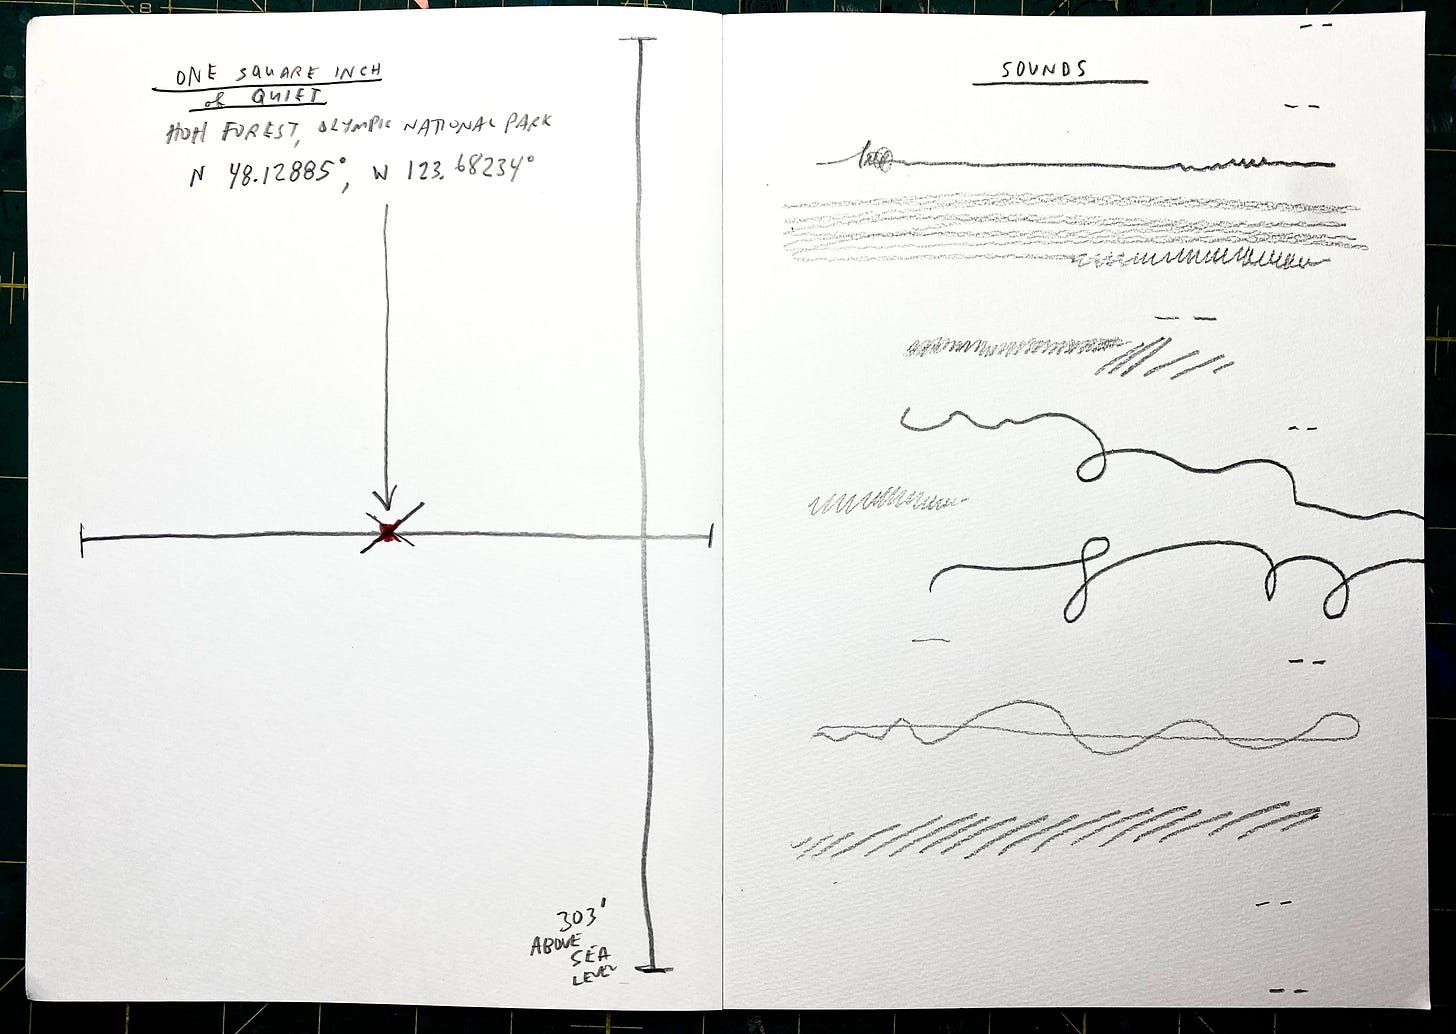 ONE SQUARE INCH
of QUIET
HOH FOREST, OLYMPIC NATIONAL PARK
N 48.12885°, W 123.68234°
303'
ABOVE
SEA
LEVEL
SOUNDS